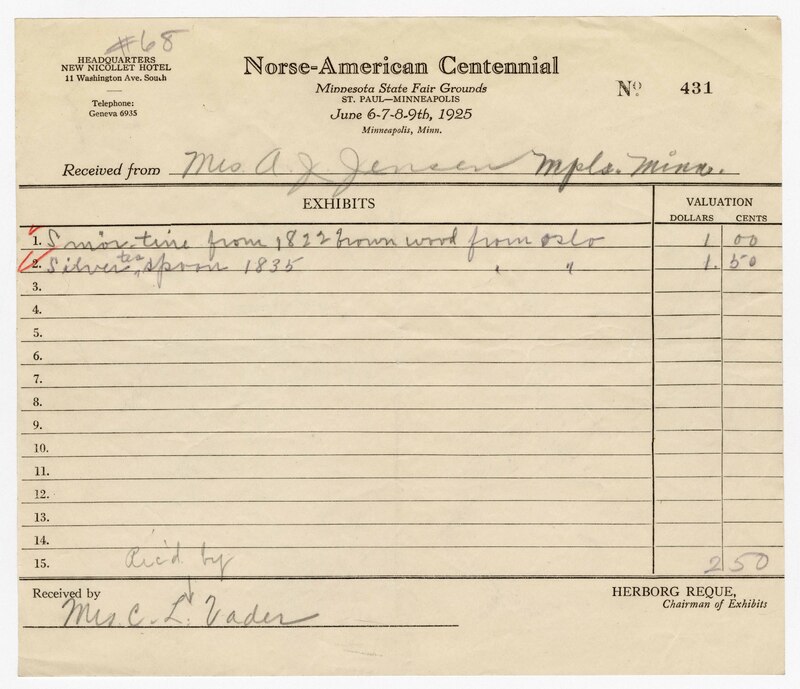 #68
HEADQUARTERS
NEW NICOLLET HOTEL
11 Washington Ave. South
Telephone:
Geneva 6935
Norse-American Centennial
Minnesota State Fair Grounds
ST. PAUL—MINNEAPOLIS
June 6-7-8-9th, 1925
Minneapolis, Minn.
No. 431
Received from Mrs. A. J. Jensen Mpls. Minn.
EXHIBITS VALUATION
DOLLARS CENTS
1. Smör-tine from 1822 brown wood from Oslo 1 00
2. Silver tea spoon 1835 " " 1. 50
3.
4.
5.
6.
7.
8.
9.
10.
11.
12.
13.
14.
15. 2 50
Rec'd by
Received by Mrs. C. L. Vader
HERBORG REQUE,
Chairman of Exhibits